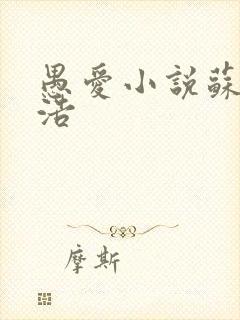 愚愛小說蘇
活
摩斯